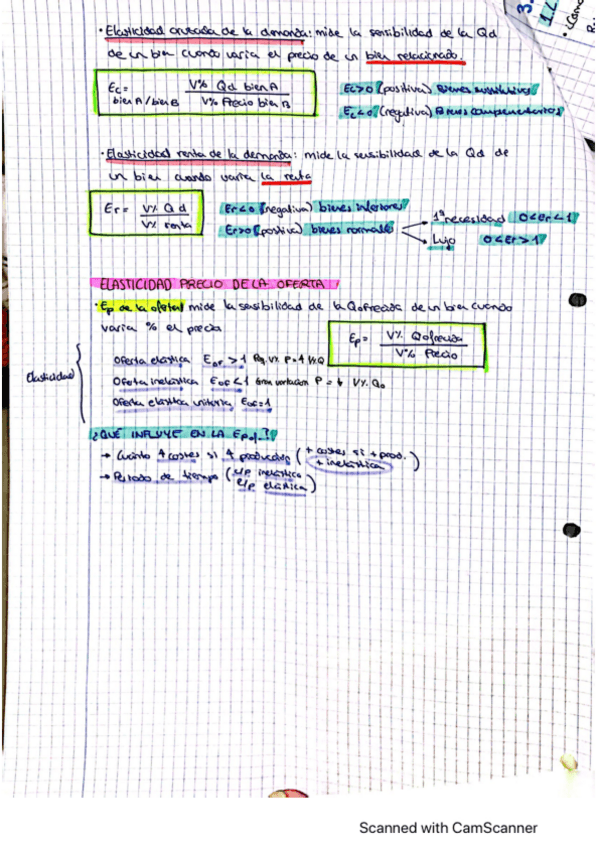 3.
1.1.
· ¿Cómo
· Elasticidad cruzada de la demanda: mide la sensibilidad de la Qd
de un bien cuando varía el precio de un bien relacionado.
Ec = V% Qd bien A
bien A / bien B V% Precio bien B
Ec>0 (positiva) Bienes sustitutivos
Ec<0 (negativa) Bienes complementarios
· Elasticidad renta de la demanda: mide la sensibilidad de la Qd de
un bien cuando varía la renta
Er = V% Qd
V% renta
Er<0 (negativa) bienes inferiores
Er>0 (positiva) bienes normales
1ª necesidad 0<Er<1
Lujo 0<Er>1
ELASTICIDAD PRECIO DE LA OFERTA
· Ep de la oferta/ mide la sensibilidad de la Qofrecida de un bien cuando
varía % el precio
Ep = V% Qofrecida
V% Precio
Elasticidad
Oferta elástica Eof > 1
Oferta inelástica Eof < 1 Gran variación P =
Oferta elástica unitaria Eof = 1
¿QUÉ INFLUYE EN LA Epof.?
→ Cuánto ↑ costes si ↑ producción (+ costes si + prod.
+ inelástica)
→ Periodo de tiempo (c/p inelástica
l/p elástica)
Scanned with CamScanner